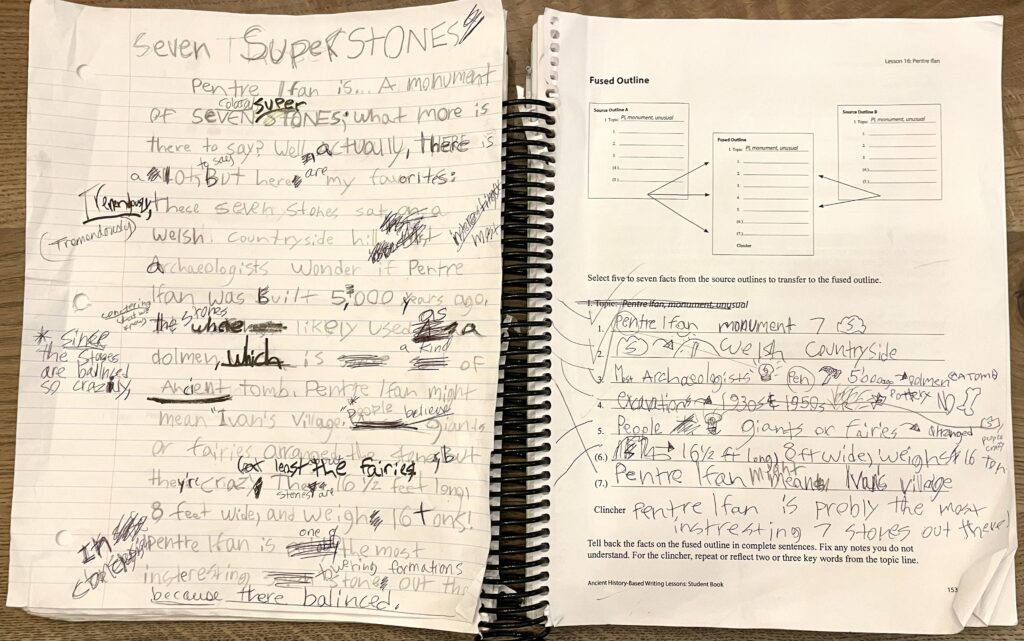 Seven SuperSTONES
Pentre Ifan is... A monument
colosal super
OF SEVEN STONES; what more is
there to say? Well, actually, THERE is
to say are
a lot, But here my favorites:
Tremendously, these seven stones sat
(Tremendously)
Welsh countryside hill
Archaeologists wonder if Pentre
Ifan was Built 5,000 years ago,
the stones as
likely used a
a kind
dolmen, which is of
Ancient tomb. Pentre Ifan might
* people believe
mean "Ivan's Village." giants
or fairies arranged the stones, But
(at least the fairies)
they're crazy. The 16 1/2 feet long,
stones are
8 feet wide, and weigh 16 tons!
one of
Pentre Ifan is the most
towering formations
insteresting stones out the
because there balinced.
* Since
the stones
are balinced
so crazily,
Lesson 16: Pentre Ifan
Fused Outline
Source Outline A
I. Topic: PI, monument, unusual
1.
2.
3.
(4.)
(5.)
Fused Outline
I. Topic: PI, monument, unusual
1.
2.
3.
4.
5.
(6.)
(7.)
Clincher
Source Outline B
I. Topic: PI, monument, unusual
1.
2.
3.
(4.)
(5.)
Select five to seven facts from the source outlines to transfer to the fused outline.
I. Topic: Pentre Ifan, monument, unusual
1. Pentre Ifan monument 7 (S)
2. (S) Welsh Countryside
3. Most Archaeologists Pen 5000 dolmen
4. excavations 1930s & 1950s pottery NO
5. People giants or fairies arranged (S)
(6.) 16 1/2 ft long, 8ft wide, weighs 16 ton
(7.) Pentre Ifan might mean Ivan's village
Clincher Pentre Ifan is probly the most
instresting 7 stones out there!
Tell back the facts on the fused outline in complete sentences. Fix any notes you do not
understand. For the clincher, repeat or reflect two or three key words from the topic line.
Ancient History-Based Writing Lessons: Student Book
153